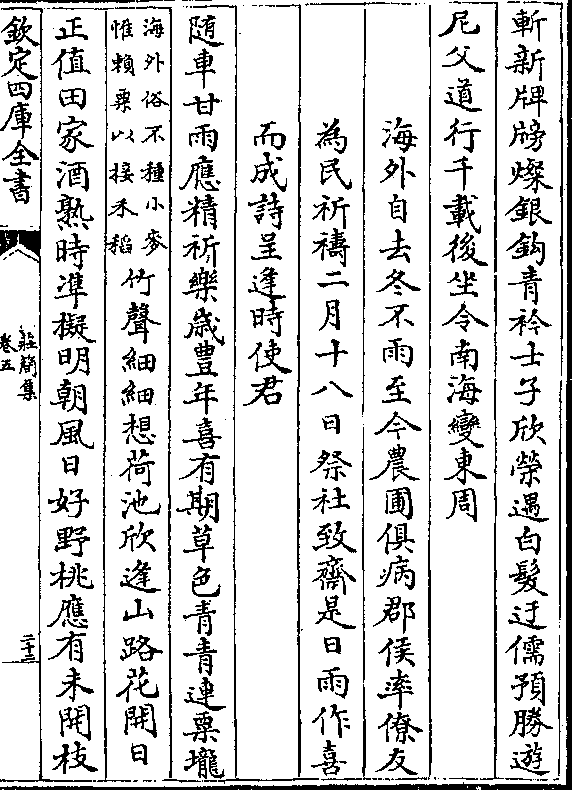 斬新牌牓燦銀鈎青衿士子欣榮遇白髮迂儒預勝遊
尼父道行千載後坐令南海變東周
海外自去冬不雨至今農圃俱病郡侯率僚友
為民祈禱二月十八日祭社致齋是日雨作喜
而成詩呈逢時使君
随車甘雨應精祈樂歳豐年喜有期草色青青連粟壠
海外俗不種小麥
惟賴粟以接禾稻
竹聲細細想荷池欣逢山路花開日
正值田家酒熟時凖擬明朝風日好野桃應有未開枝
欽定四庫全書
莊簡集
卷五
二十三